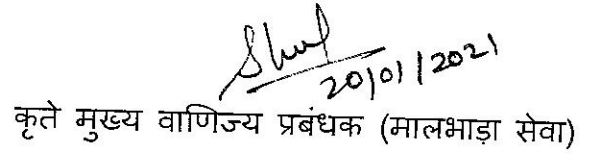 20/01/2021
कृते मुख्य वाणिज्य प्रबंधक (मालभाड़ा सेवा)